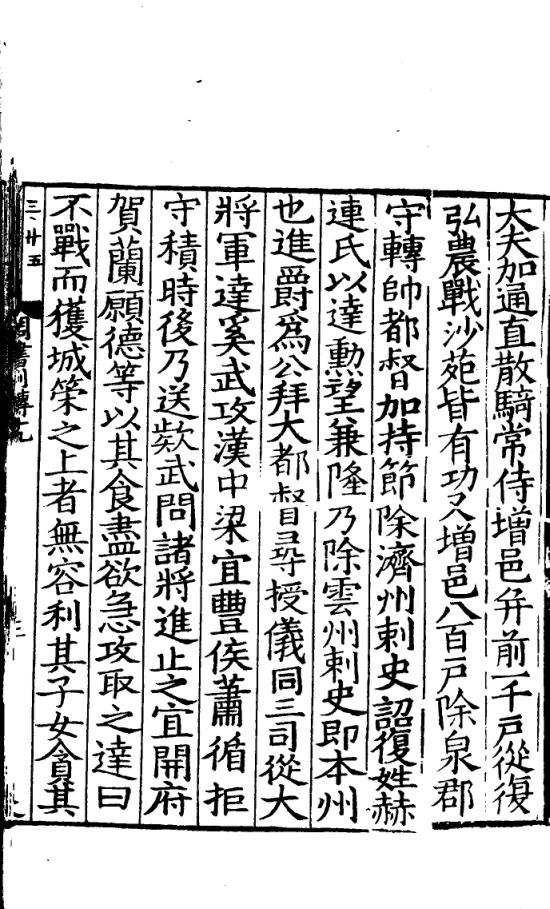 大夫加通直散騎常侍增邑并前一千戸從復
弘農戰沙苑皆有功又增邑八百戸除泉郡
守轉帥都督加持節除濟州刺史詔復姓赫
連氏以達勲望兼隆乃除雲州刺史即本州
也進爵爲公拜大都督尋授儀同三司從大
將軍達奚武攻漢中梁宜豐侯蕭循拒
守積時後乃送欵武問諸將進止之宜開府
賀蘭願德等以其食盡欲急攻取之達曰
不戰而獲城策之上者無容利其子女貪其
三廿五
周書列傳十九
三